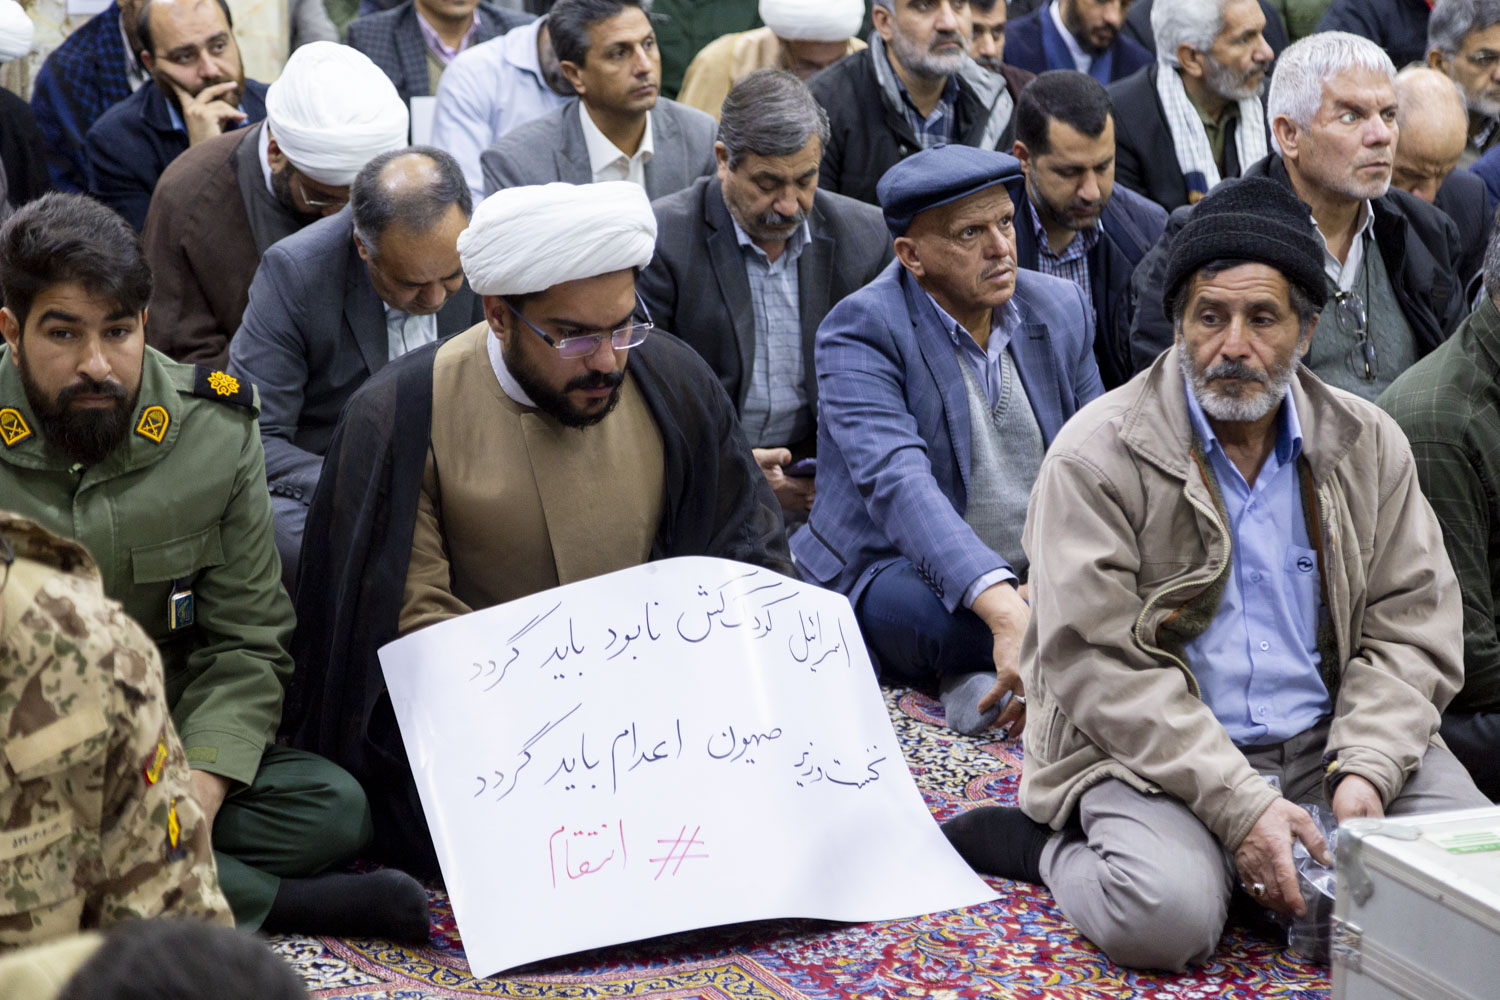 اسرائیل کودک کش نابود باید گردد
نخست وزیر صهیون اعدام باید گردد
# انتقام